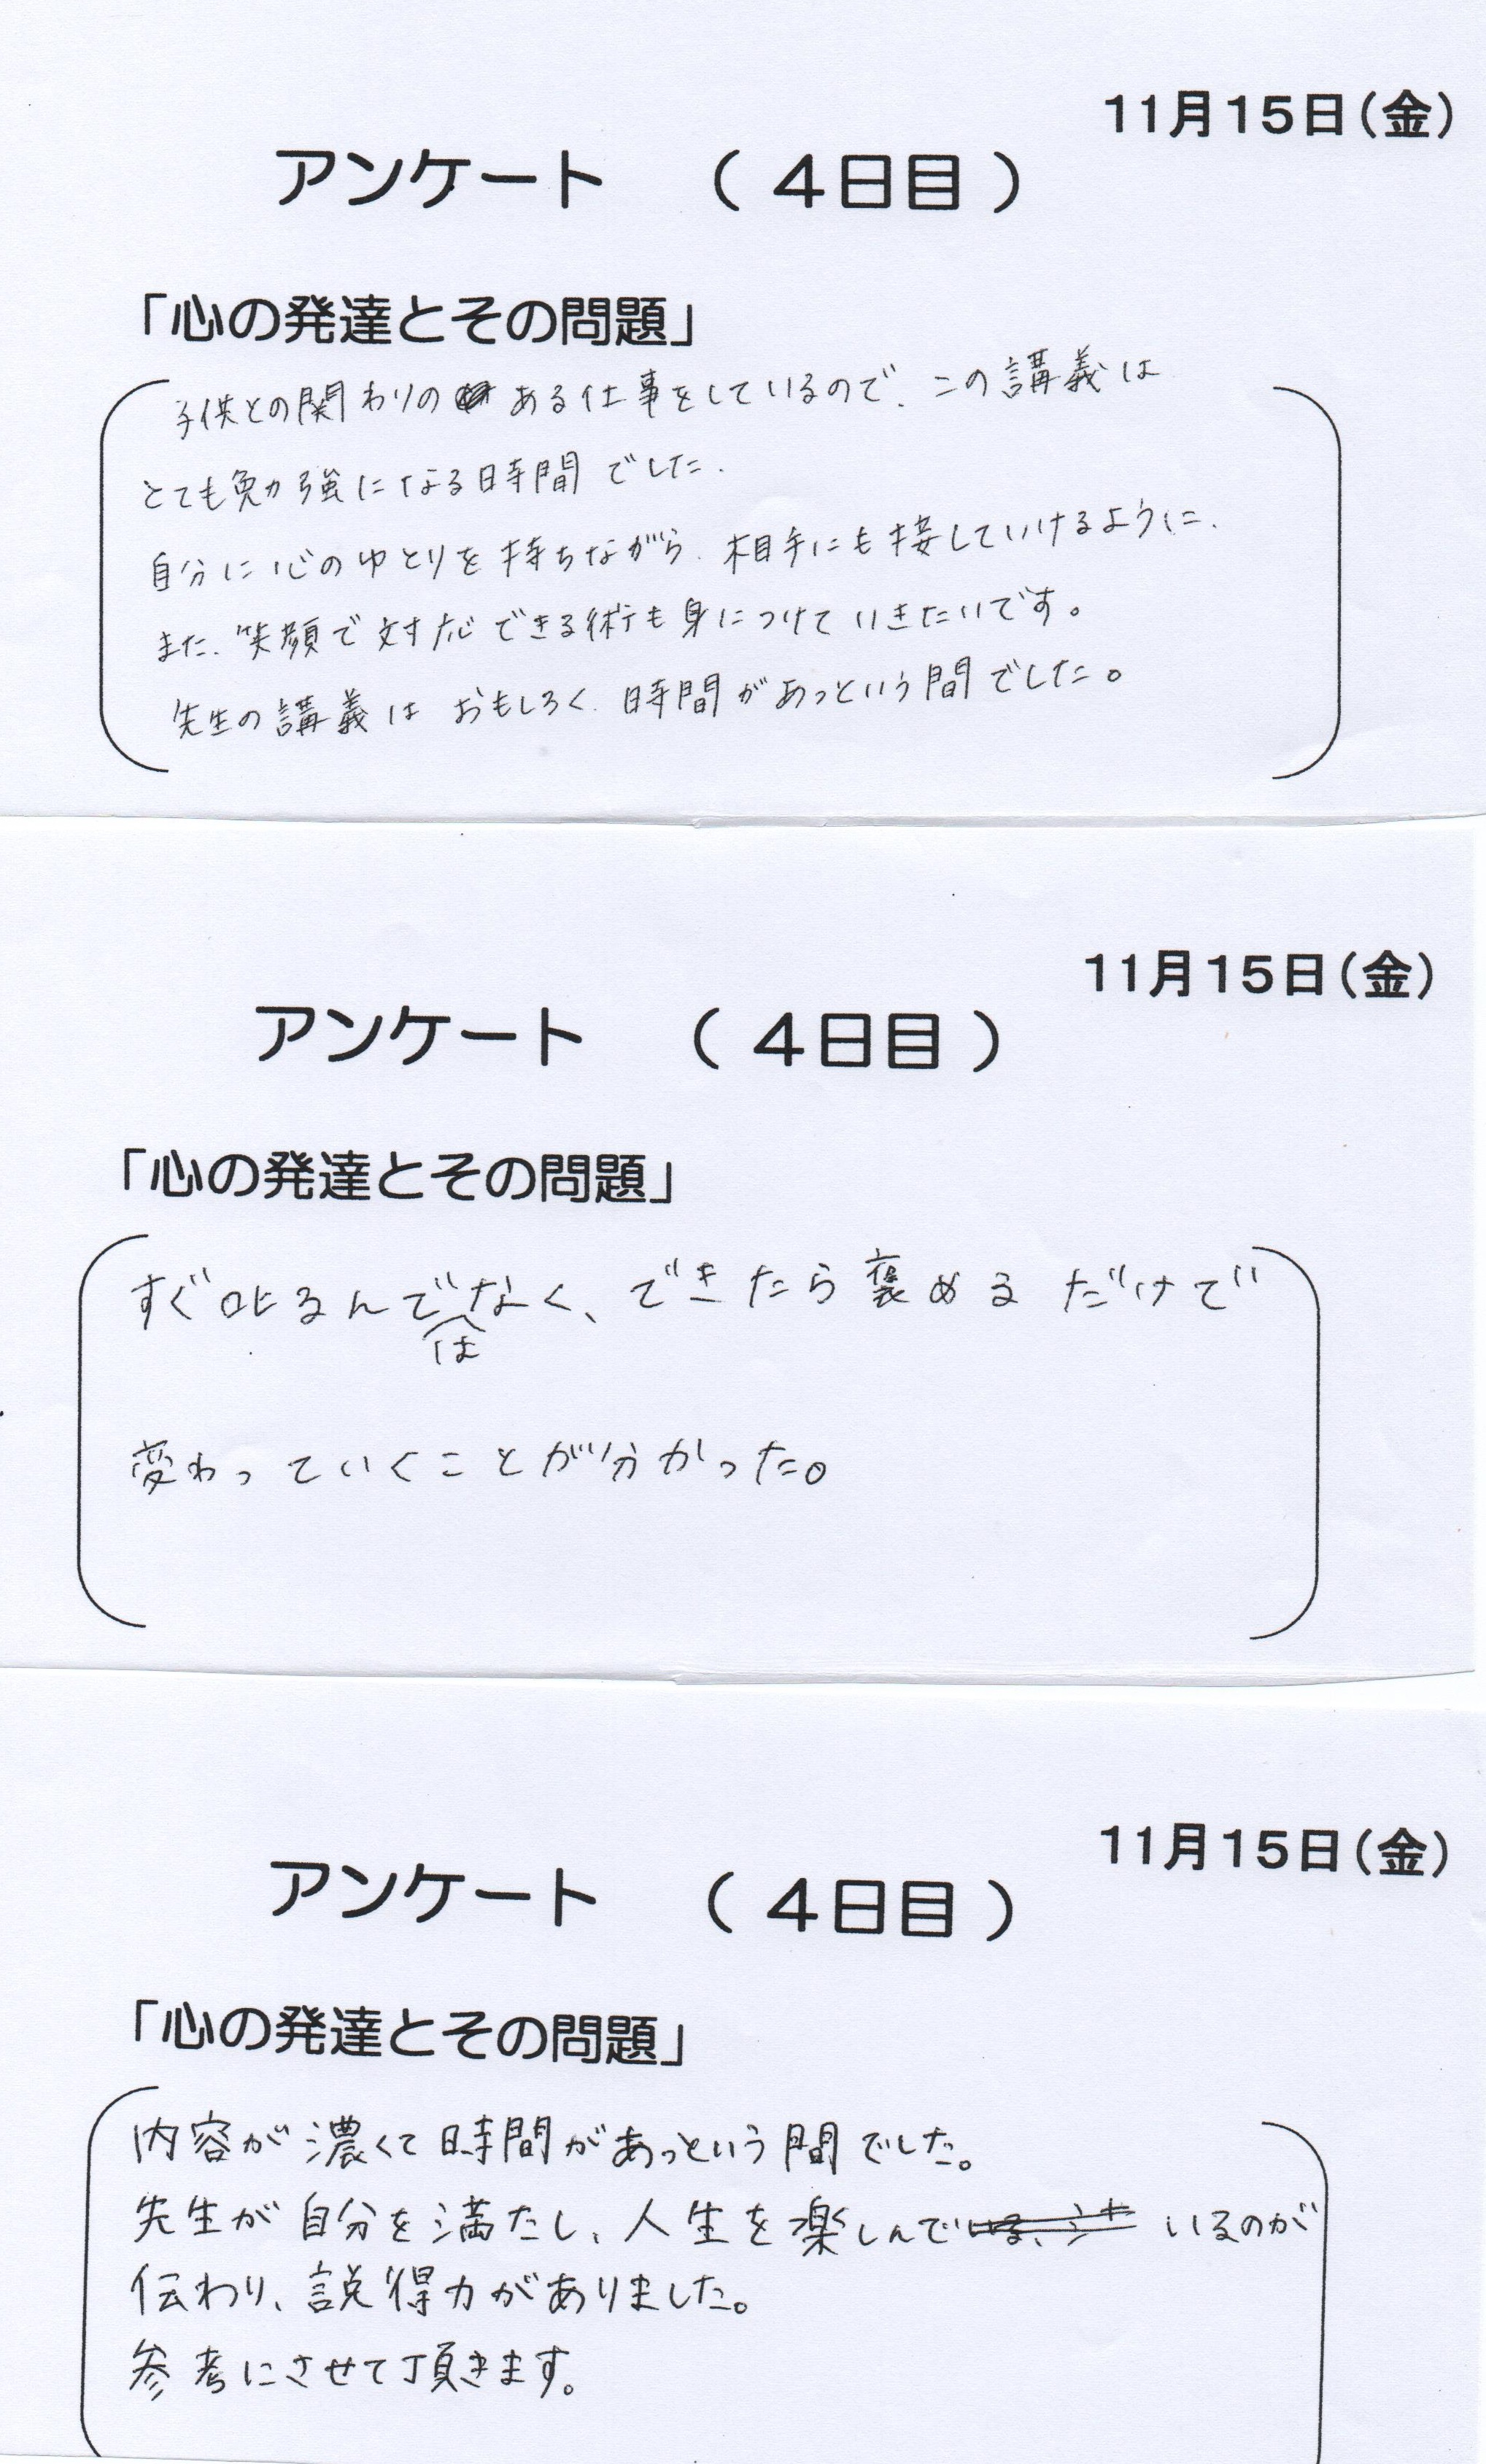 11月15日(金)
アンケート　( 4日目 )
「心の発達とその問題」
子供との関わりの ある仕事をしているので、この講義は
とても勉強になる時間でした.
自分に心のゆとりを持ちながら、相手にも接していけるように、
また、笑顔で対応できる術も身につけていきたいです。
先生の講義は おもしろく、時間があっという間でした。
11月15日(金)
アンケート　( 4日目 )
「心の発達とその問題」
すぐ叱るんではなく、できたら褒めるだけで
変わっていくことが分かった。
11月15日(金)
アンケート　( 4日目 )
「心の発達とその問題」
内容が濃くて時間があっという間でした。
先生が自分を満たし、人生を楽しんで いるのが
伝わり、説得力がありました。
参考にさせて頂きます。